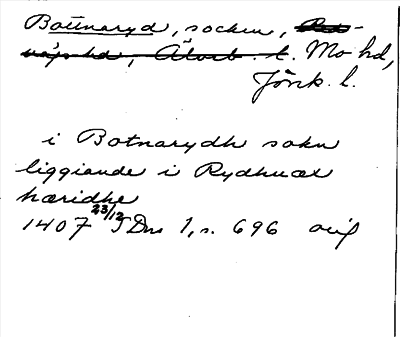 Bottnaryd, socken, Red-
vägs hd, Älvsb. l. Mo hd,
Jönk. l.
i Botnarydh sokn
liggiande i Rydhuæs
hæridhe
1407 23/12 SDns 1, s. 696 orig